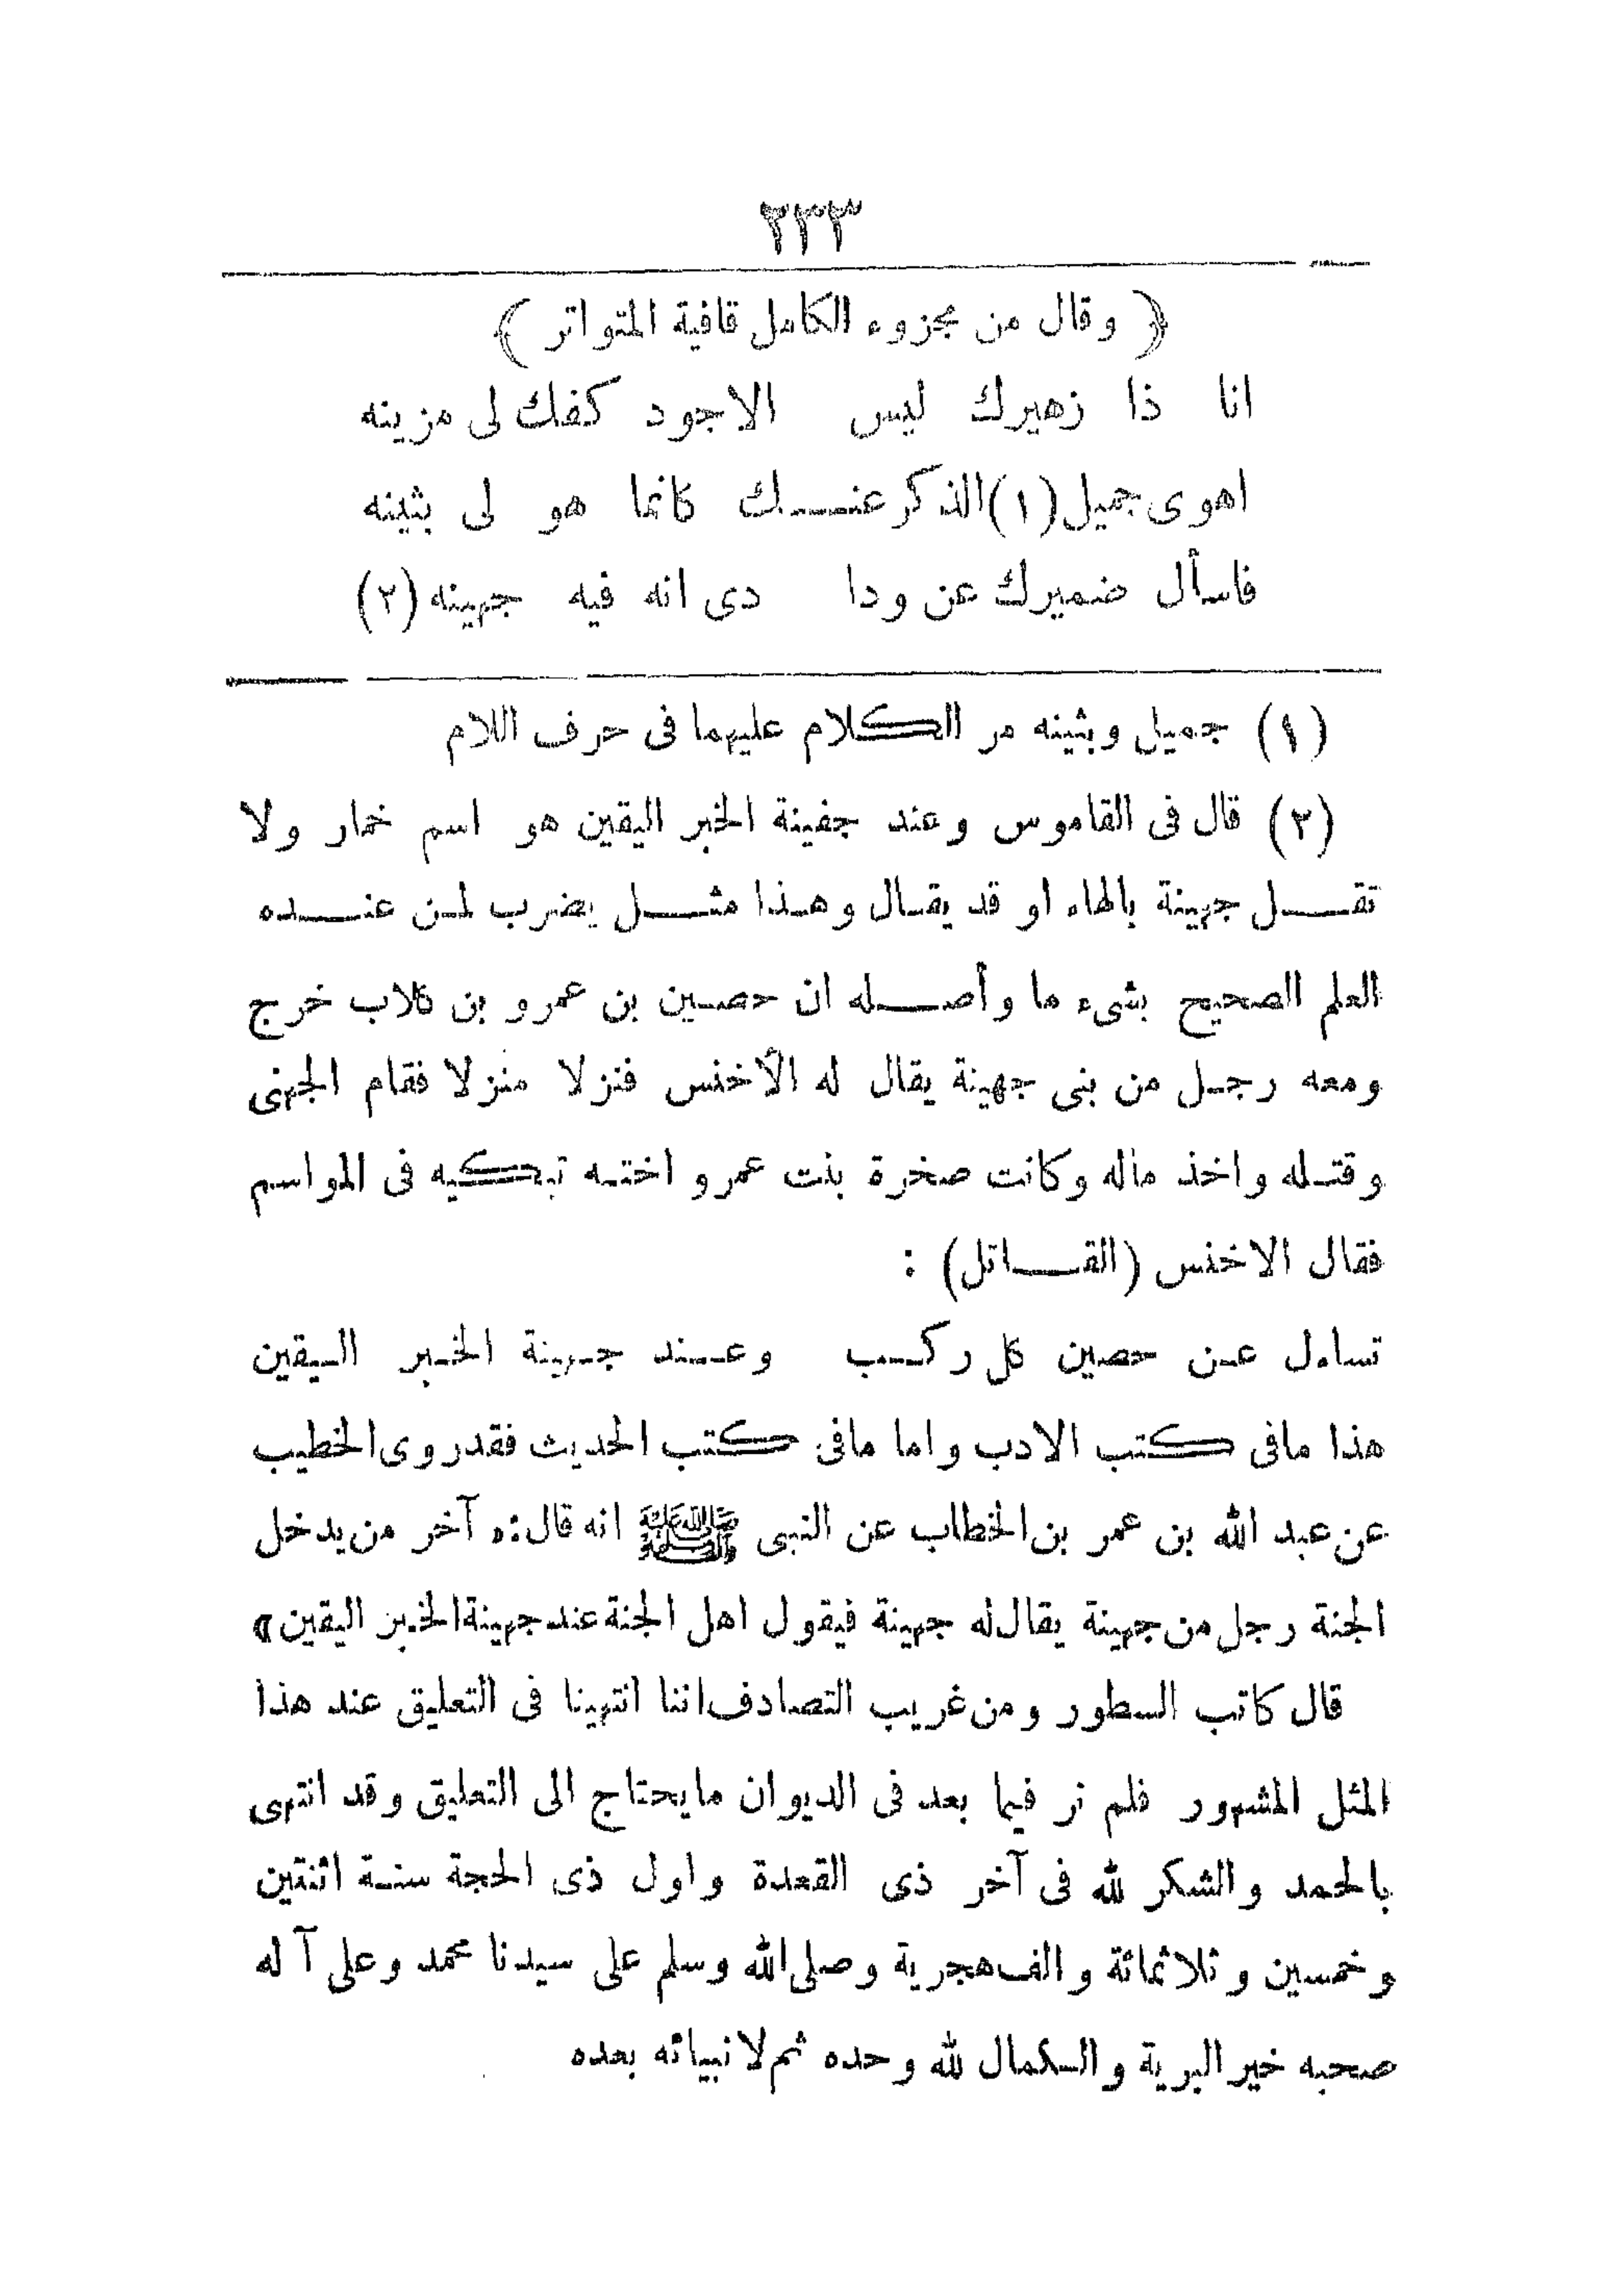 ٢٣٣
﴿ وقال من مجزوء الكامل قافية المتواتر ﴾
انا ذا زهيرك ليس الاجود كفك لى مزينه
اهوى جميل (١) الذكر عنك كانما هو لى بثينه
فاسأل ضميرك عن ودا دى انه فيه جهينه (٢)
(١) جميل وبثينه مر الكلام عليهما فى حرف اللام
(٢) قال فى القاموس وعند جفينة الخبر اليقين هو اسم خمار ولا
تقل جهينة بالهاء او قد يقال وهذا مثل يضرب لمن عنده
العلم الصحيح بشىء ما وأصله ان حصين بن عمرو بن كلاب خرج
ومعه رجل من بنى جهينة يقال له الأخنس فنزلا منزلا فقام الجهنى
وقتله واخذ ماله وكانت صخرة بنت عمرو اخته تبكيه فى المواسم
فقال الاخنس (القاتل) :
تساءل عن حصين كل ركب وعند جهينة الخبر اليقين
هذا مافى كتب الادب واما مافى كتب الحديث فقدروى الخطيب
عن عبد الله بن عمر بن الخطاب عن النبى ﷺ انه قال: « آخر من يدخل
الجنة رجل من جهينة يقال له جهينة فيقول اهل الجنة عند جهينة الخبر اليقين »
قال كاتب السطور ومن غريب التصادف اننا انتهينا فى التعليق عند هذا
المثل المشهور فلم نر فيما بعد فى الديوان مايحتاج الى التعليق وقد انتهى
بالحمد والشكر لله فى آخر ذى القعدة واول ذى الحجة سنة اثنتين
وخمسين وثلاثمائة والف هجرية وصلى الله وسلم على سيدنا محمد وعلى آله
صحبه خير البرية والكمال لله وحده ثم لانبيائه بعده